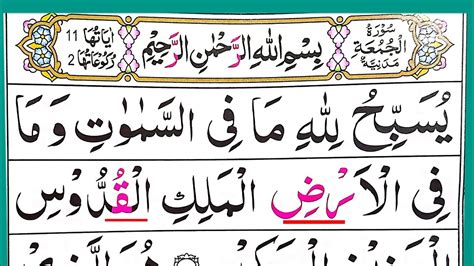 سُورَةُ الْجُمُعَةِ مَدَنِيَّةٌ
بِسْمِ اللهِ الرَّحْمٰنِ الرَّحِيْمِ
اٰيَاتُهَا 11 رُكُوْعَاتُهَا 2
يُسَبِّحُ لِلّٰهِ مَا فِى السَّمٰوٰتِ وَمَا
فِى الْاَرْضِ الْمَلِكِ الْقُدُّوْسِ